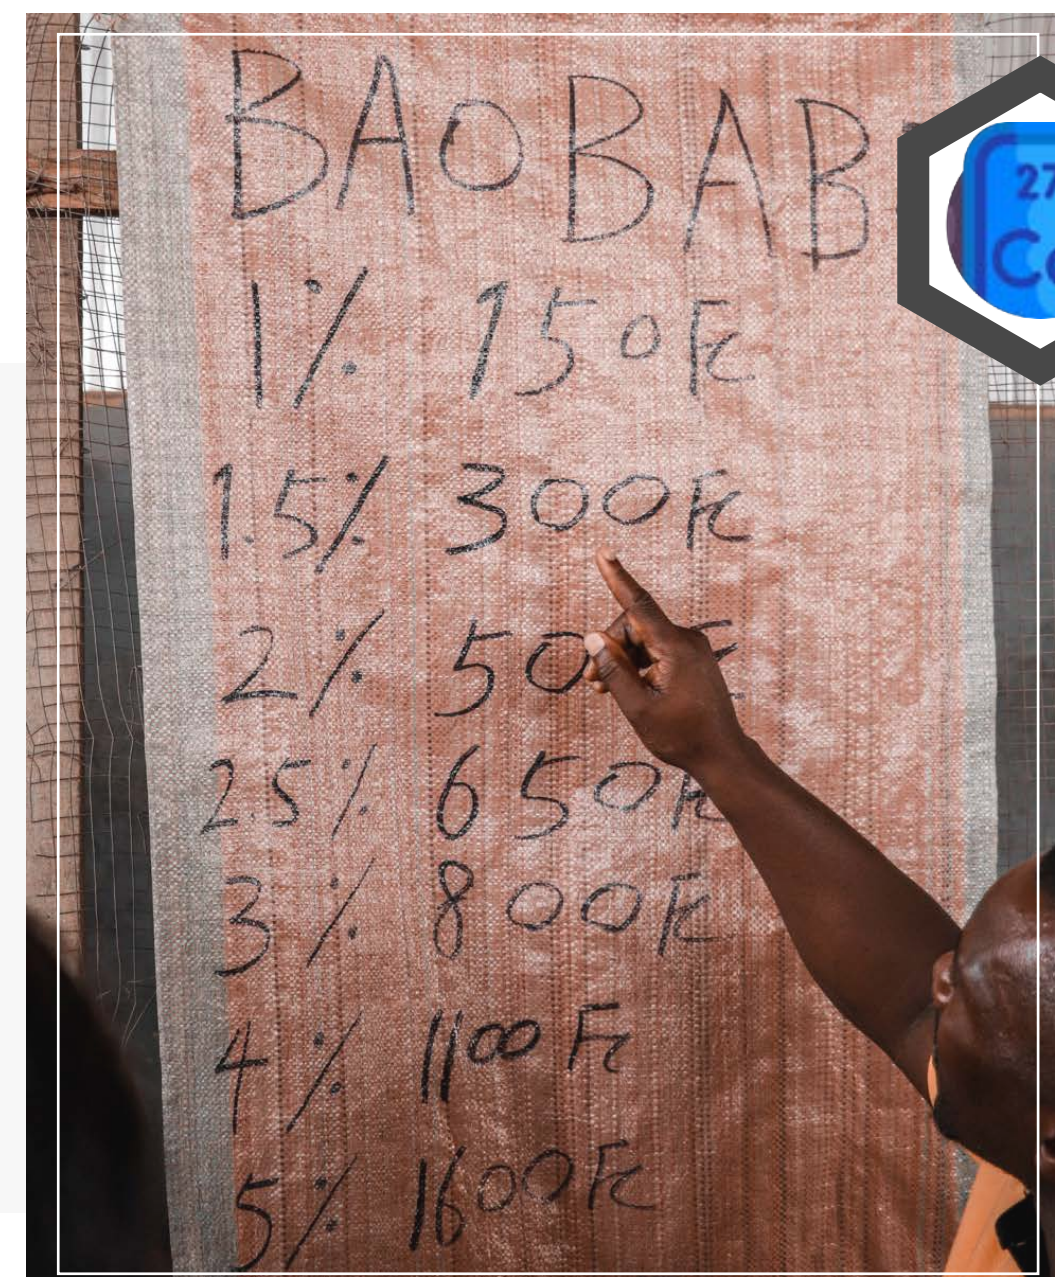 BAOBAB
1% 150Fc
1.5% 300Fc
2% 50
2.5% 650Fc
3% 800Fc
4% 1100 Fc
5% 1600Fc
27
Co